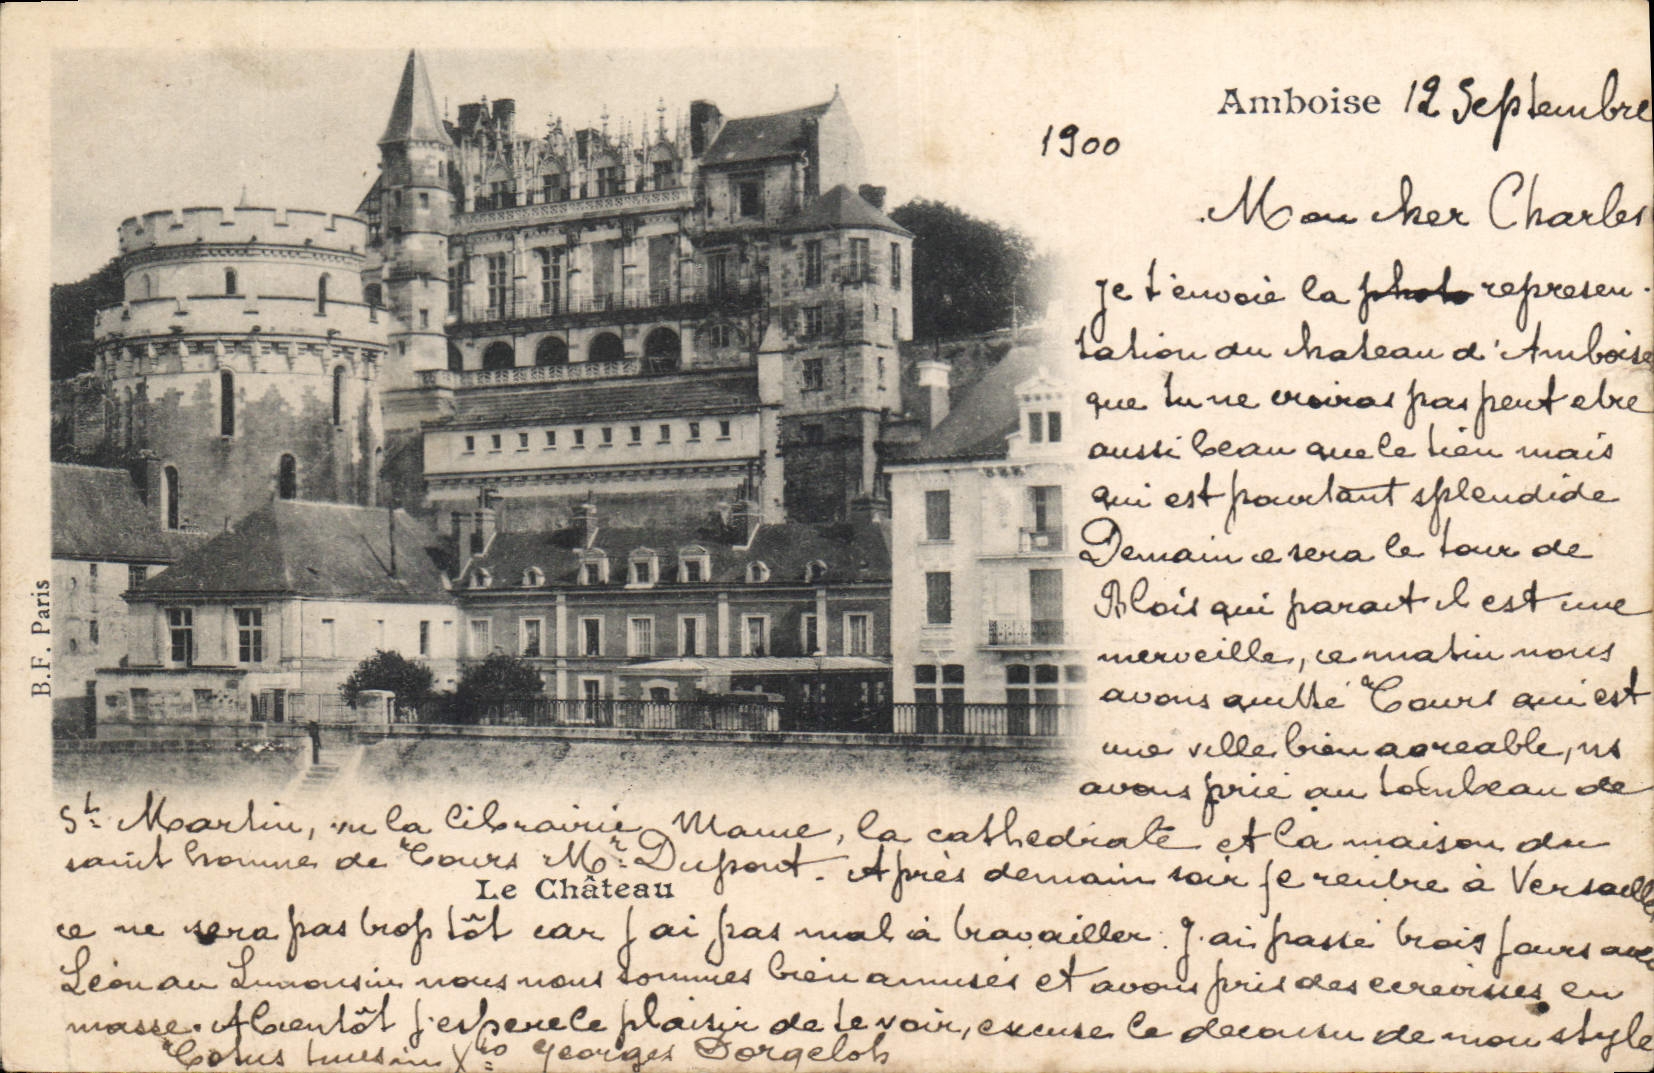 Amboise 12 Septembre
1900
Mon cher Charles
je t'envoie la photo represen-
tation du chateau d'Amboise
que tu ne croiras pas peut etre
aussi beau que le tien mais
qui est pourtant splendide
Demain ce sera le tour de
Blois qui parait il est une
merveille, ce matin nous
avons quitté Tours qui est
une ville bien agreable, ns
avons prié au tombeau de
St Martin, vu la librairie Mame, la cathédrale et la maison du
saint homme de Tours Mr Dupont. Après demain soir je rentre à Versailles
Le Château
ce ne sera pas trop tôt car j'ai pas mal à travailler. J'ai passé trois jours avec
Léon au Limousin nous nous sommes bien amusés et avons pris des ecrevisses en
masse. A bientôt j'espere le plaisir de te voir, excuse le decousu de mon style
Totus tuus in Xto Georges Dorgeloh
B.F. Paris